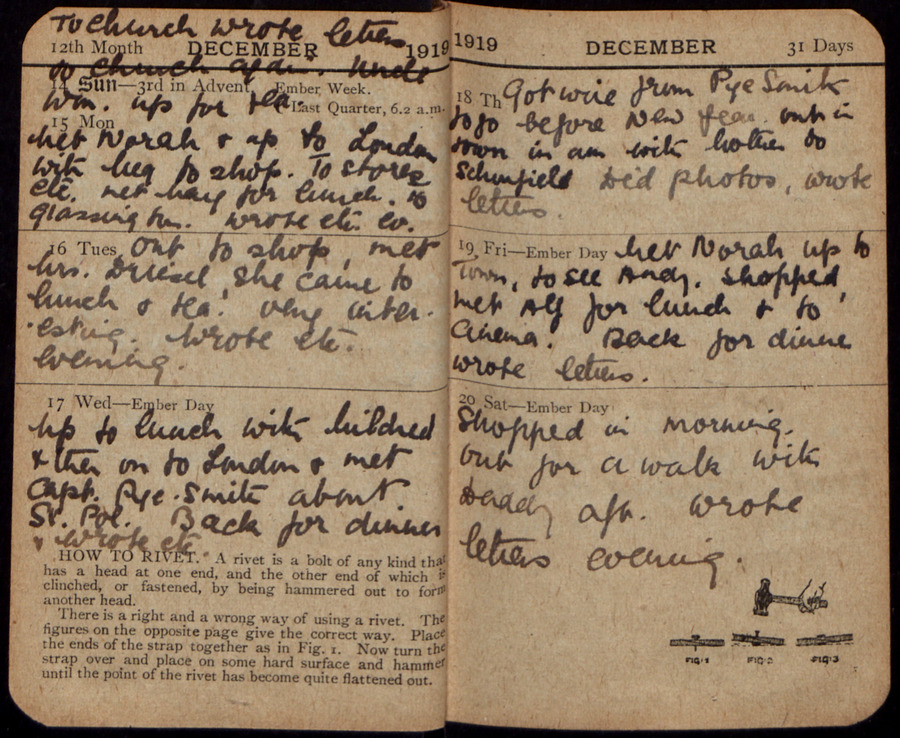 To church wrote letters
12th Month DECEMBER 1919
to church again. Uncle
14 Sun—3rd in Advent. Ember Week.
Wm. up for tea.
Last Quarter, 6.2 a.m.
15 Mon
Met Norah & up to London
with her to shop. To stores
etc. met for lunch. to
wrote etc. ev.
16 Tues out to shop, met
Mrs. she came to
lunch & tea, very inter-
esting. Wrote etc.
evening.
17 Wed—Ember Day
Up to lunch with Mildred
& then on to London & met
Capt. Pye-Smith about
St. Pol. Back for dinner
& wrote etc.
HOW TO RIVET. A rivet is a bolt of any kind that
has a head at one end, and the other end of which is
clinched, or fastened, by being hammered out to form
another head.
There is a right and a wrong way of using a rivet. The
figures on the opposite page give the correct way. Place
the ends of the strap together as in Fig. 1. Now turn the
strap over and place on some hard surface and hammer
until the point of the rivet has become quite flattened out.
1919 DECEMBER 31 Days
18 Th Got wire from Pye Smith
to go before New Year. out in
town in am with Mother to
Did photos, wrote
letters.
19 Fri—Ember Day Met Norah up to
Town, to see Andy. Shopped,
met Alf for lunch & to
Cinema. Back for dinner
wrote letters.
20 Sat—Ember Day
Shopped in morning.
out for a walk with
Daddy aft. Wrote
letters evening.
FIG 1 FIG 2 FIG 3